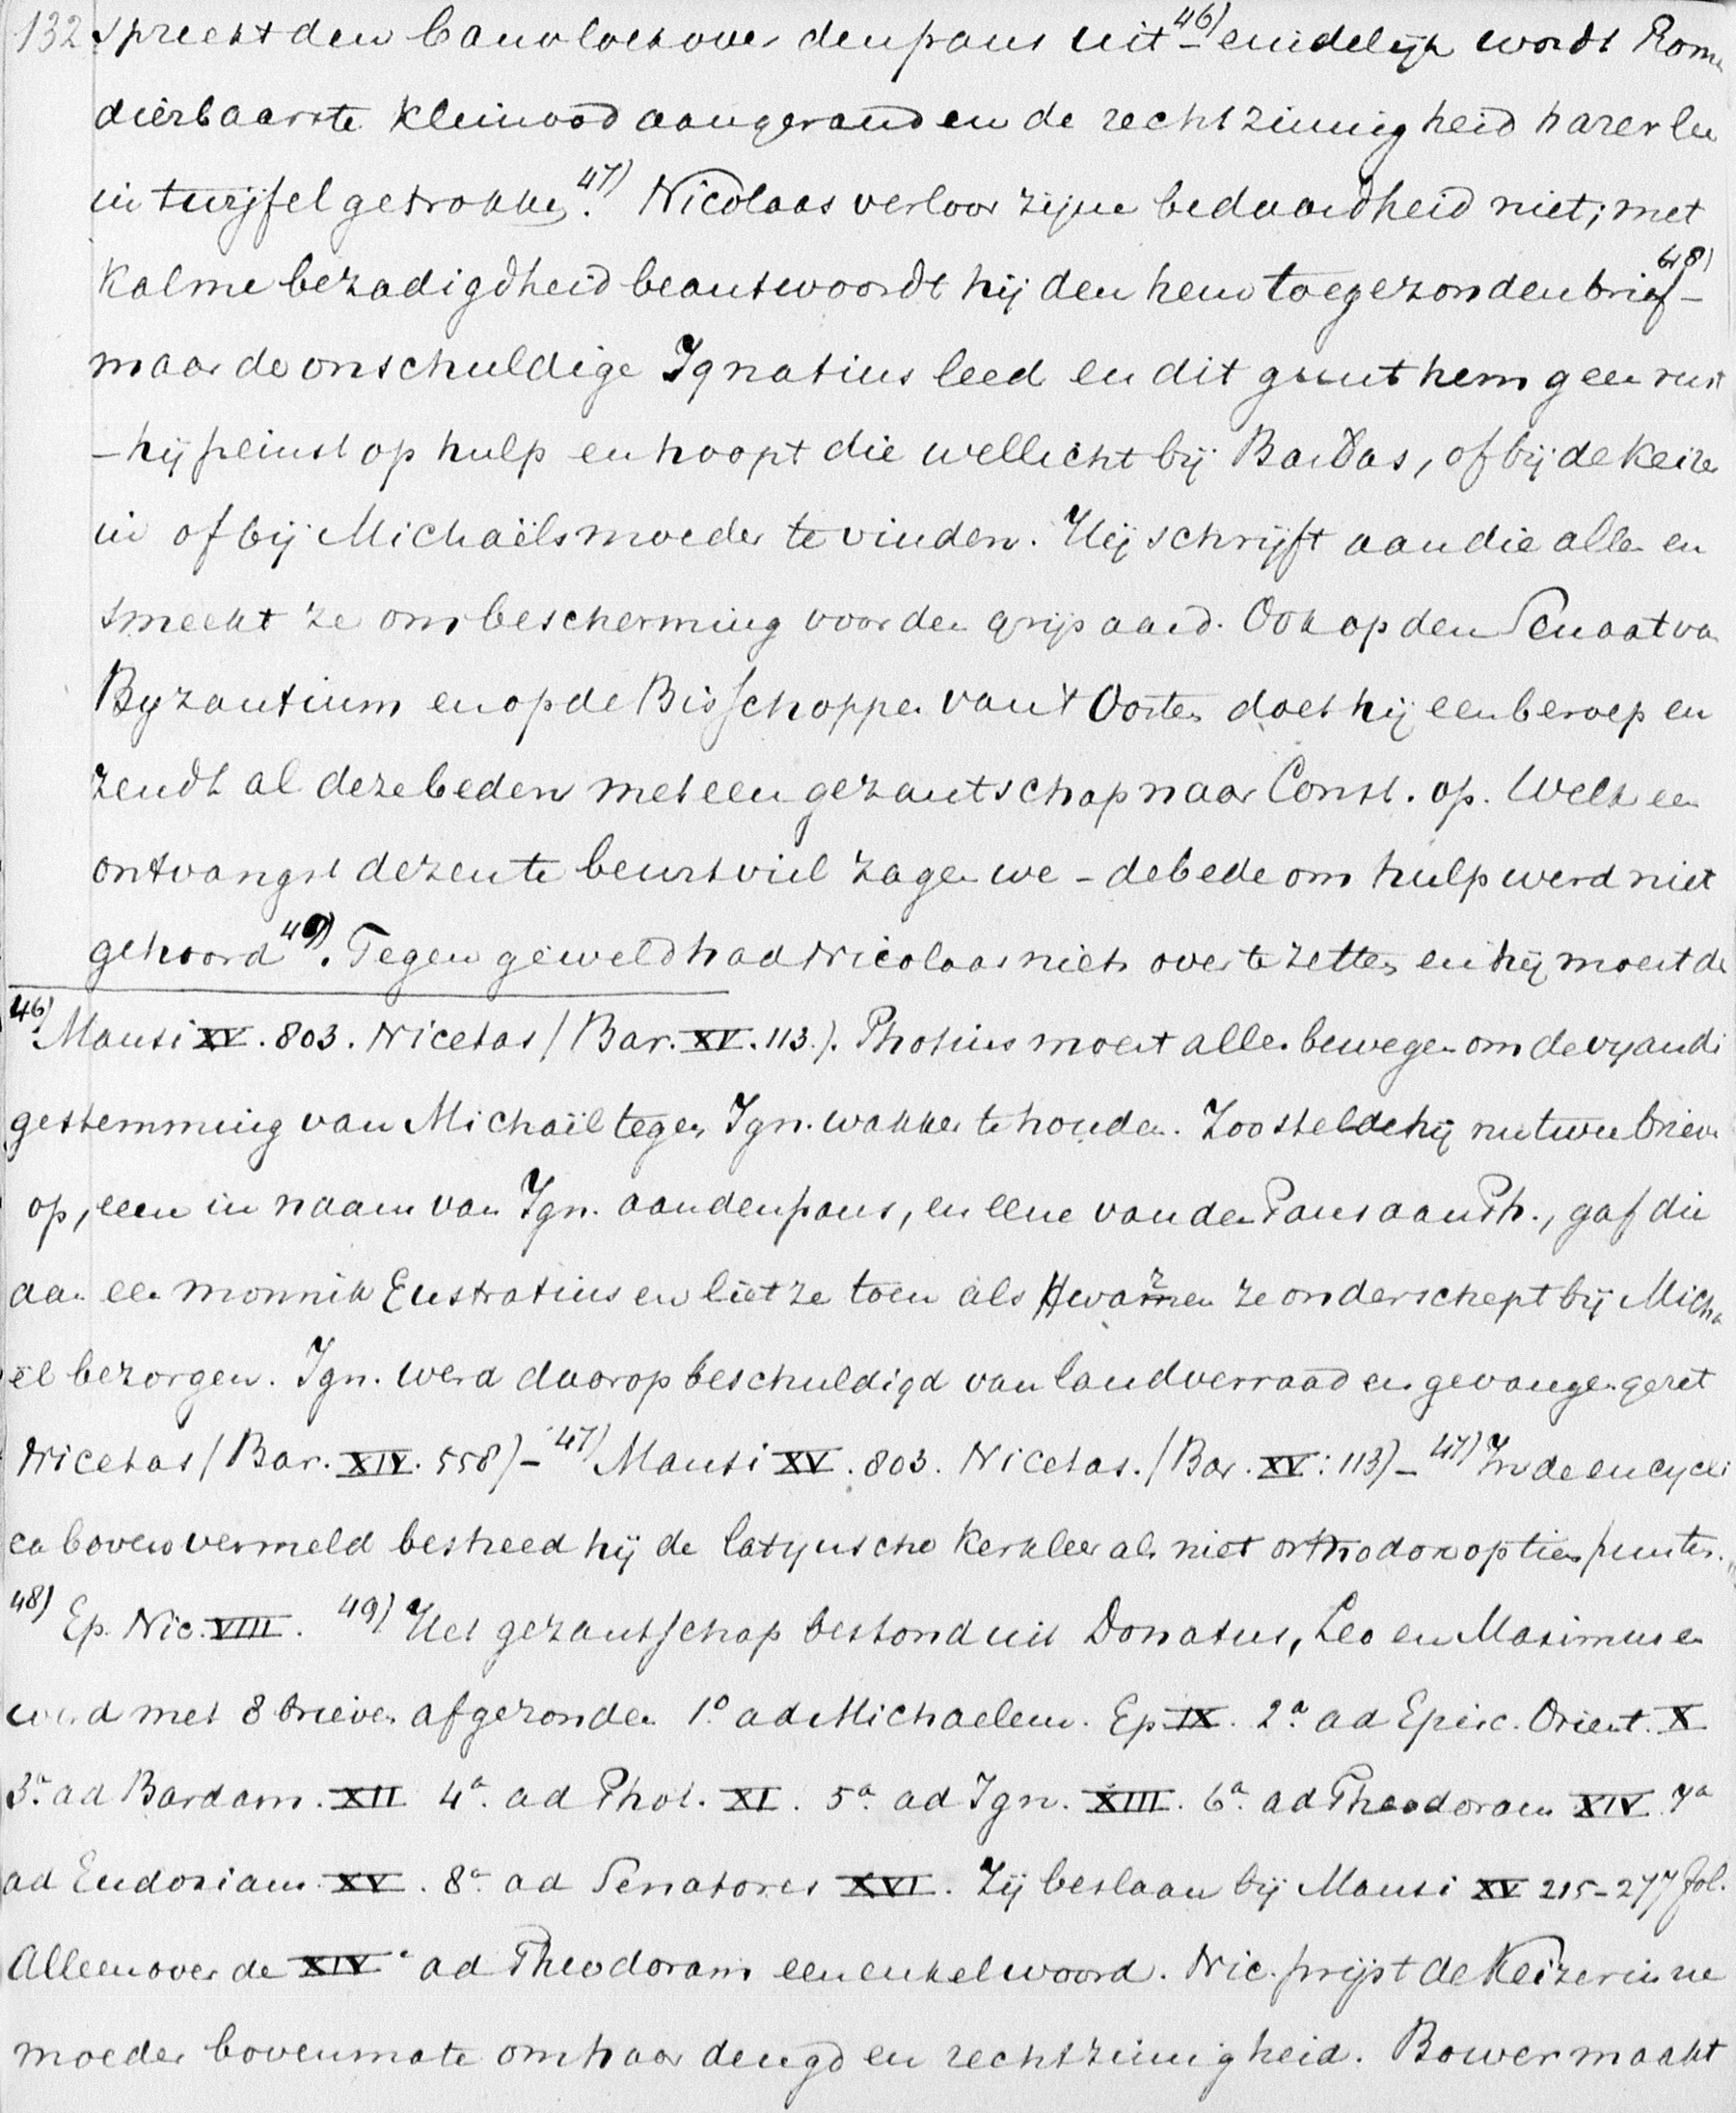 132 spreekt den banvloek over den paus uit 46) – eindelijk wordt Rome
dierbaarste kleinood aangerand en de rechtzinnigheid harer lee
in twijfel getrokken. 47) Nicolaas verloor zijne bedaardheid niet; met
kalme bezadigdheid beantwoordt hij den hem toegezonden brief 48) –
maar de onschuldige Ignatius leed en dit gunt hem geen rust
– hij peinst op hulp en hoopt die wellicht bij Bardas, of bij de keize
in of bij Michaëls moeder te vinden. Hij schrijft aan die allen en
smeekt ze om bescherming voor den grijsaard. Ook op den Senaat van
Byzantium en op de Bisschoppen van 't Oosten doet hij een beroep en
zendt al deze beden met een gezantschap naar Const. op. Welk een
ontvangst dezen te beurt viel zagen we – de bede om hulp werd niet
gehoord 49). Tegen geweld had Nicolaas niets over te zetten en hij moest de
46) Mansi XV. 803. Nicetas (Bar. XV. 113.). Photius moest allen bewegen om de vyandi
gestemming van Michaël tegen Ign. wakker te houden. Zoo stelde hij nu twee brieven
op, een in naam van Ign. aan den paus, en eene van den Paus aan Ph., gaf die
aan een monnik Eustratius en liet ze toen als kwamen ze onderschept bij Micha
ël bezorgen. Ign. werd daarop beschuldigd van landverraad en gevangen gezet
Nicetas (Bar. XIV. 558) – 47) Mansi XV. 803. Nicetas. (Bar. XV. 113) – 47) In de encycli
ca boven vermeld bestreed hij de latynsche kerkleer als niet orthodox op tien punten.
48) Ep. Nic. VIII. 49) Het gezantschap bestond uit Donatus, Leo en Maximus en
werd met 8 brieven afgezonden 1.º ad Michaelem. Ep. IX. 2.ª ad Episc. Orient. X
3.ª ad Bardam. XII 4ª. ad Phot. XI. 5ª. ad Ign. XIII. 6ª. ad Theodoram XIV. 7ª
ad Eudoxiam. XV. 8ª. ad Senatores XVI. Zij beslaan bij Mansi XV 215–277 fol.
Alleen over de XIVe ad Theodoram een enkel woord. Nic. prijst de Keizerinne
moeder bovenmate om haar deugd en rechtzinnigheid. Bower maakt